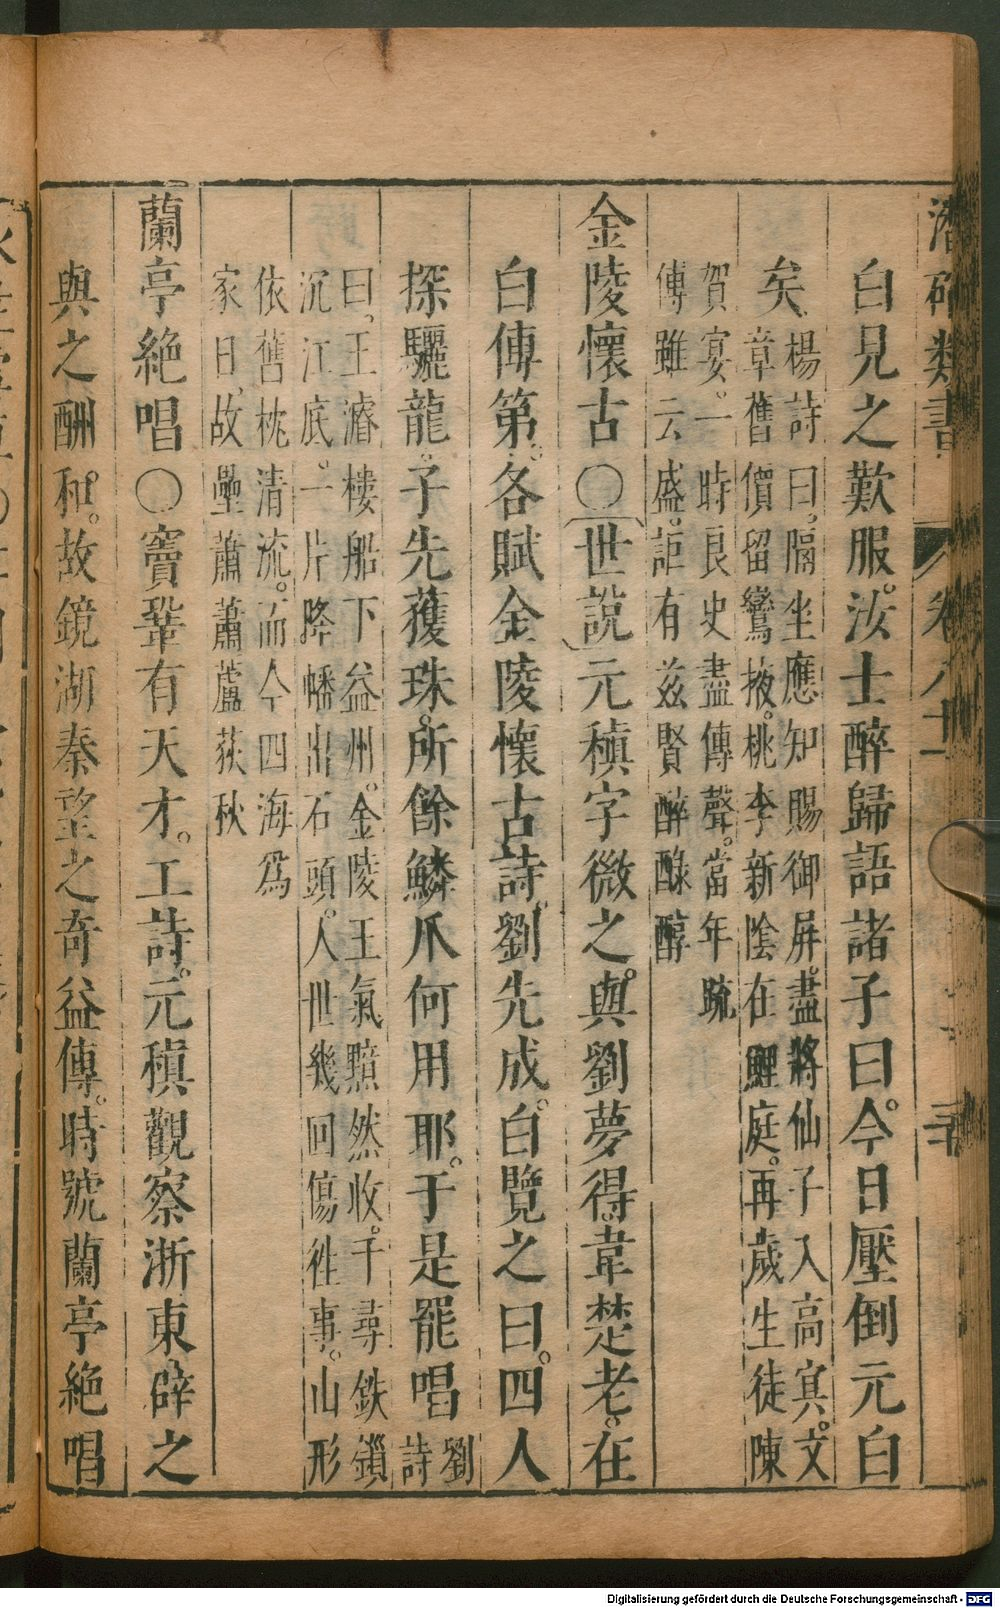 潛確類書 卷八十 三十
白見之歎服。汝士醉歸語諸子曰。今日壓倒元白
矣。
楊詩曰。隔坐應知賜御屏。盡將仙子入高冥。文
章舊價留鸞掖。桃李新陰在鯉庭。再歲生徒陳
賀宴。一時良史盡傳聲。當年疏
傅雖云盛。詎有茲賢醉醁醇
金陵懷古○世說元稹字微之。與劉夢得韋楚老。在
白傅第。各賦金陵懷古詩。劉先成。白覽之曰。四人
探驪龍。子先獲珠。所餘鱗爪何用耶。于是罷唱
劉詩
曰。王濬樓船下益州。金陵王氣黯然收。千尋鉄鎖
沉江底。一片降幡出石頭。人世幾回傷徃事。山形
依舊枕清流。而今四海為
家日。故壘蕭蕭蘆荻秋
蘭亭絕唱○竇鞏有天才。工詩。元稹觀察浙東辟之
與之酬和。故鏡湖秦望之奇益傳。時號蘭亭絕唱
Digitalisierung gefördert durch die Deutsche Forschungsgemeinschaft - DFG